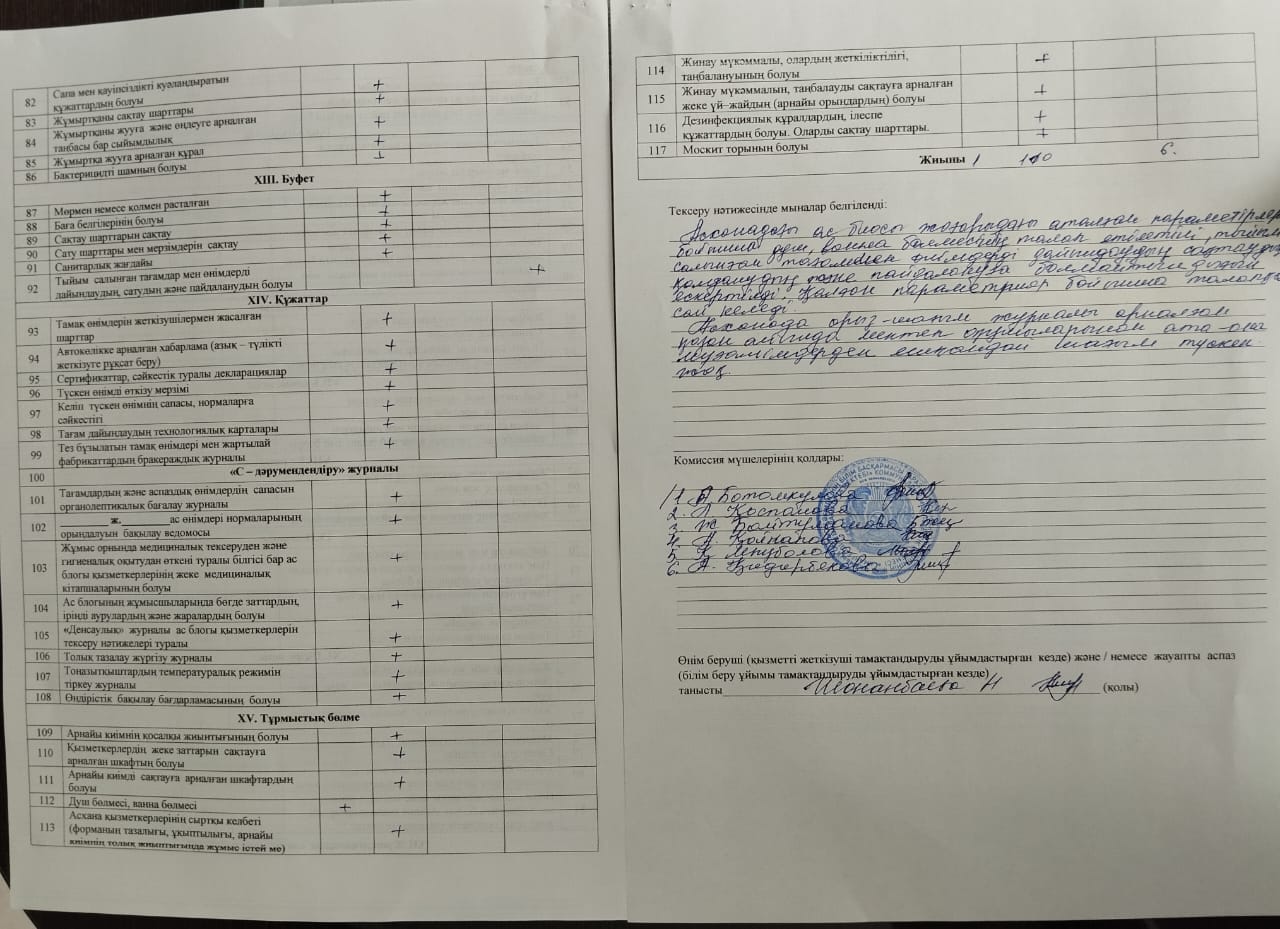 82 Сапа мен қауіпсіздікті куәландыратын
құжаттардың болуы +
83 Жұмыртқаны сақтау шарттары +
84 Жұмыртқаны жууға және өңдеуге арналған
таңбасы бар сыйымдылық +
85 Жұмыртқа жууға арналған құрал +
86 Бактерицидті шамның болуы +
XIII. Буфет
87 Мөрмен немесе қолмен расталған +
88 Баға белгілерінің болуы +
89 Сақтау шарттарын сақтау +
90 Сату шарттары мен мерзімдерін сақтау +
91 Санитарлық жағдайы +
92 Тыйым салынған тағамдар мен өнімдерді
дайындаудың, сатудың және пайдаланудың болуы +
XIV. Құжаттар
93 Тамақ өнімдерін жеткізушілермен жасалған
шарттар +
94 Автокөлікке арналған хабарлама (азық – түлікті
жеткізуге рұқсат беру) +
95 Сертификаттар, сәйкестік туралы декларациялар +
96 Түскен өнімді өткізу мерзімі +
97 Келіп түскен өнімнің сапасы, нормаларға
сәйкестігі +
98 Тағам дайындаудың технологиялық карталары +
99 Тез бұзылатын тамақ өнімдері мен жартылай
фабрикаттардың бракераждық журналы +
100 «С – дәрумендендіру» журналы
101 Тағамдардың және аспаздық өнімдердің сапасын
органолептикалық бағалау журналы +
102 ________ ж. ________ас өнімдері нормаларының
орындалуын бақылау ведомосы +
103 Жұмыс орнында медициналық тексеруден және
гигиеналық оқытудан өткені туралы білгісі бар ас
блогы қызметкерлерінің жеке медициналық
кітапшаларының болуы +
104 Ас блогының жұмысшыларында бөгде заттардың,
іріңді аурулардың және жаралардың болуы +
105 «Денсаулық» журналы ас блогы қызметкерлерін
тексеру нәтижелері туралы +
106 Толық тазалау жүргізу журналы +
107 Тоңазытқыштардың температуралық режимін
тіркеу журналы +
108 Өндірістік бақылау бағдарламасының болуы +
XV. Тұрмыстық бөлме
109 Арнайы киімнің қосалқы жиынтығының болуы +
110 Қызметкерлердің жеке заттарын сақтауға
арналған шкафтың болуы +
111 Арнайы киімді сақтауға арналған шкафтардың
болуы +
112 Душ бөлмесі, ванна бөлмесі +
113 Асхана қызметкерлерінің сыртқы келбеті
(форманың тазалығы, ұқыптылығы, арнайы
киімнің толық жиынтығында жұмыс істей ме) +
114 Жинау мүкәммалы, олардың жеткіліктілігі,
таңбалануының болуы +
115 Жинау мүкәммалын, таңбалауды сақтауға арналған
жеке үй–жайдың (арнайы орындардың) болуы +
116 Дезинфекциялық құралдардың, ілеспе
құжаттардың болуы. Оларды сақтау шарттары. +
117 Москит торының болуы +
Жиыны 1 110 6.
Тексеру нәтижесінде мыналар белгіленді:
Асханадағы ас блогы жоғарыдағы аталған параметірлер
бойынша душ, ванна бөлмесінің талап етілетіні, тыйым
салынған тағам мен өнімдерді дайындаудың сақтаудың
қолданудың және пайдалануға болмайтындығын
ескертілді. Қалған параметрлер бойынша талапқа
сай келеді.
Асханада арыз-шағым журналы арналған
қазан айында мектеп оқушыларынан ата-ана
мұғалімдерден ешқандай шағым түскен
жоқ.
Комиссия мүшелерінің қолдары:
1. Ботомкулова
2. Л Қоспанова
3. Ж
4. А.
5. Қ
6. А. Қыдырбекова
Өнім беруші (қызметті жеткізуші тамақтандыруды ұйымдастырған кезде) және / немесе жауапты аспаз
(білім беру ұйымы тамақтандыруды ұйымдастырған кезде)
танысты Шонанбаева Н (қолы)